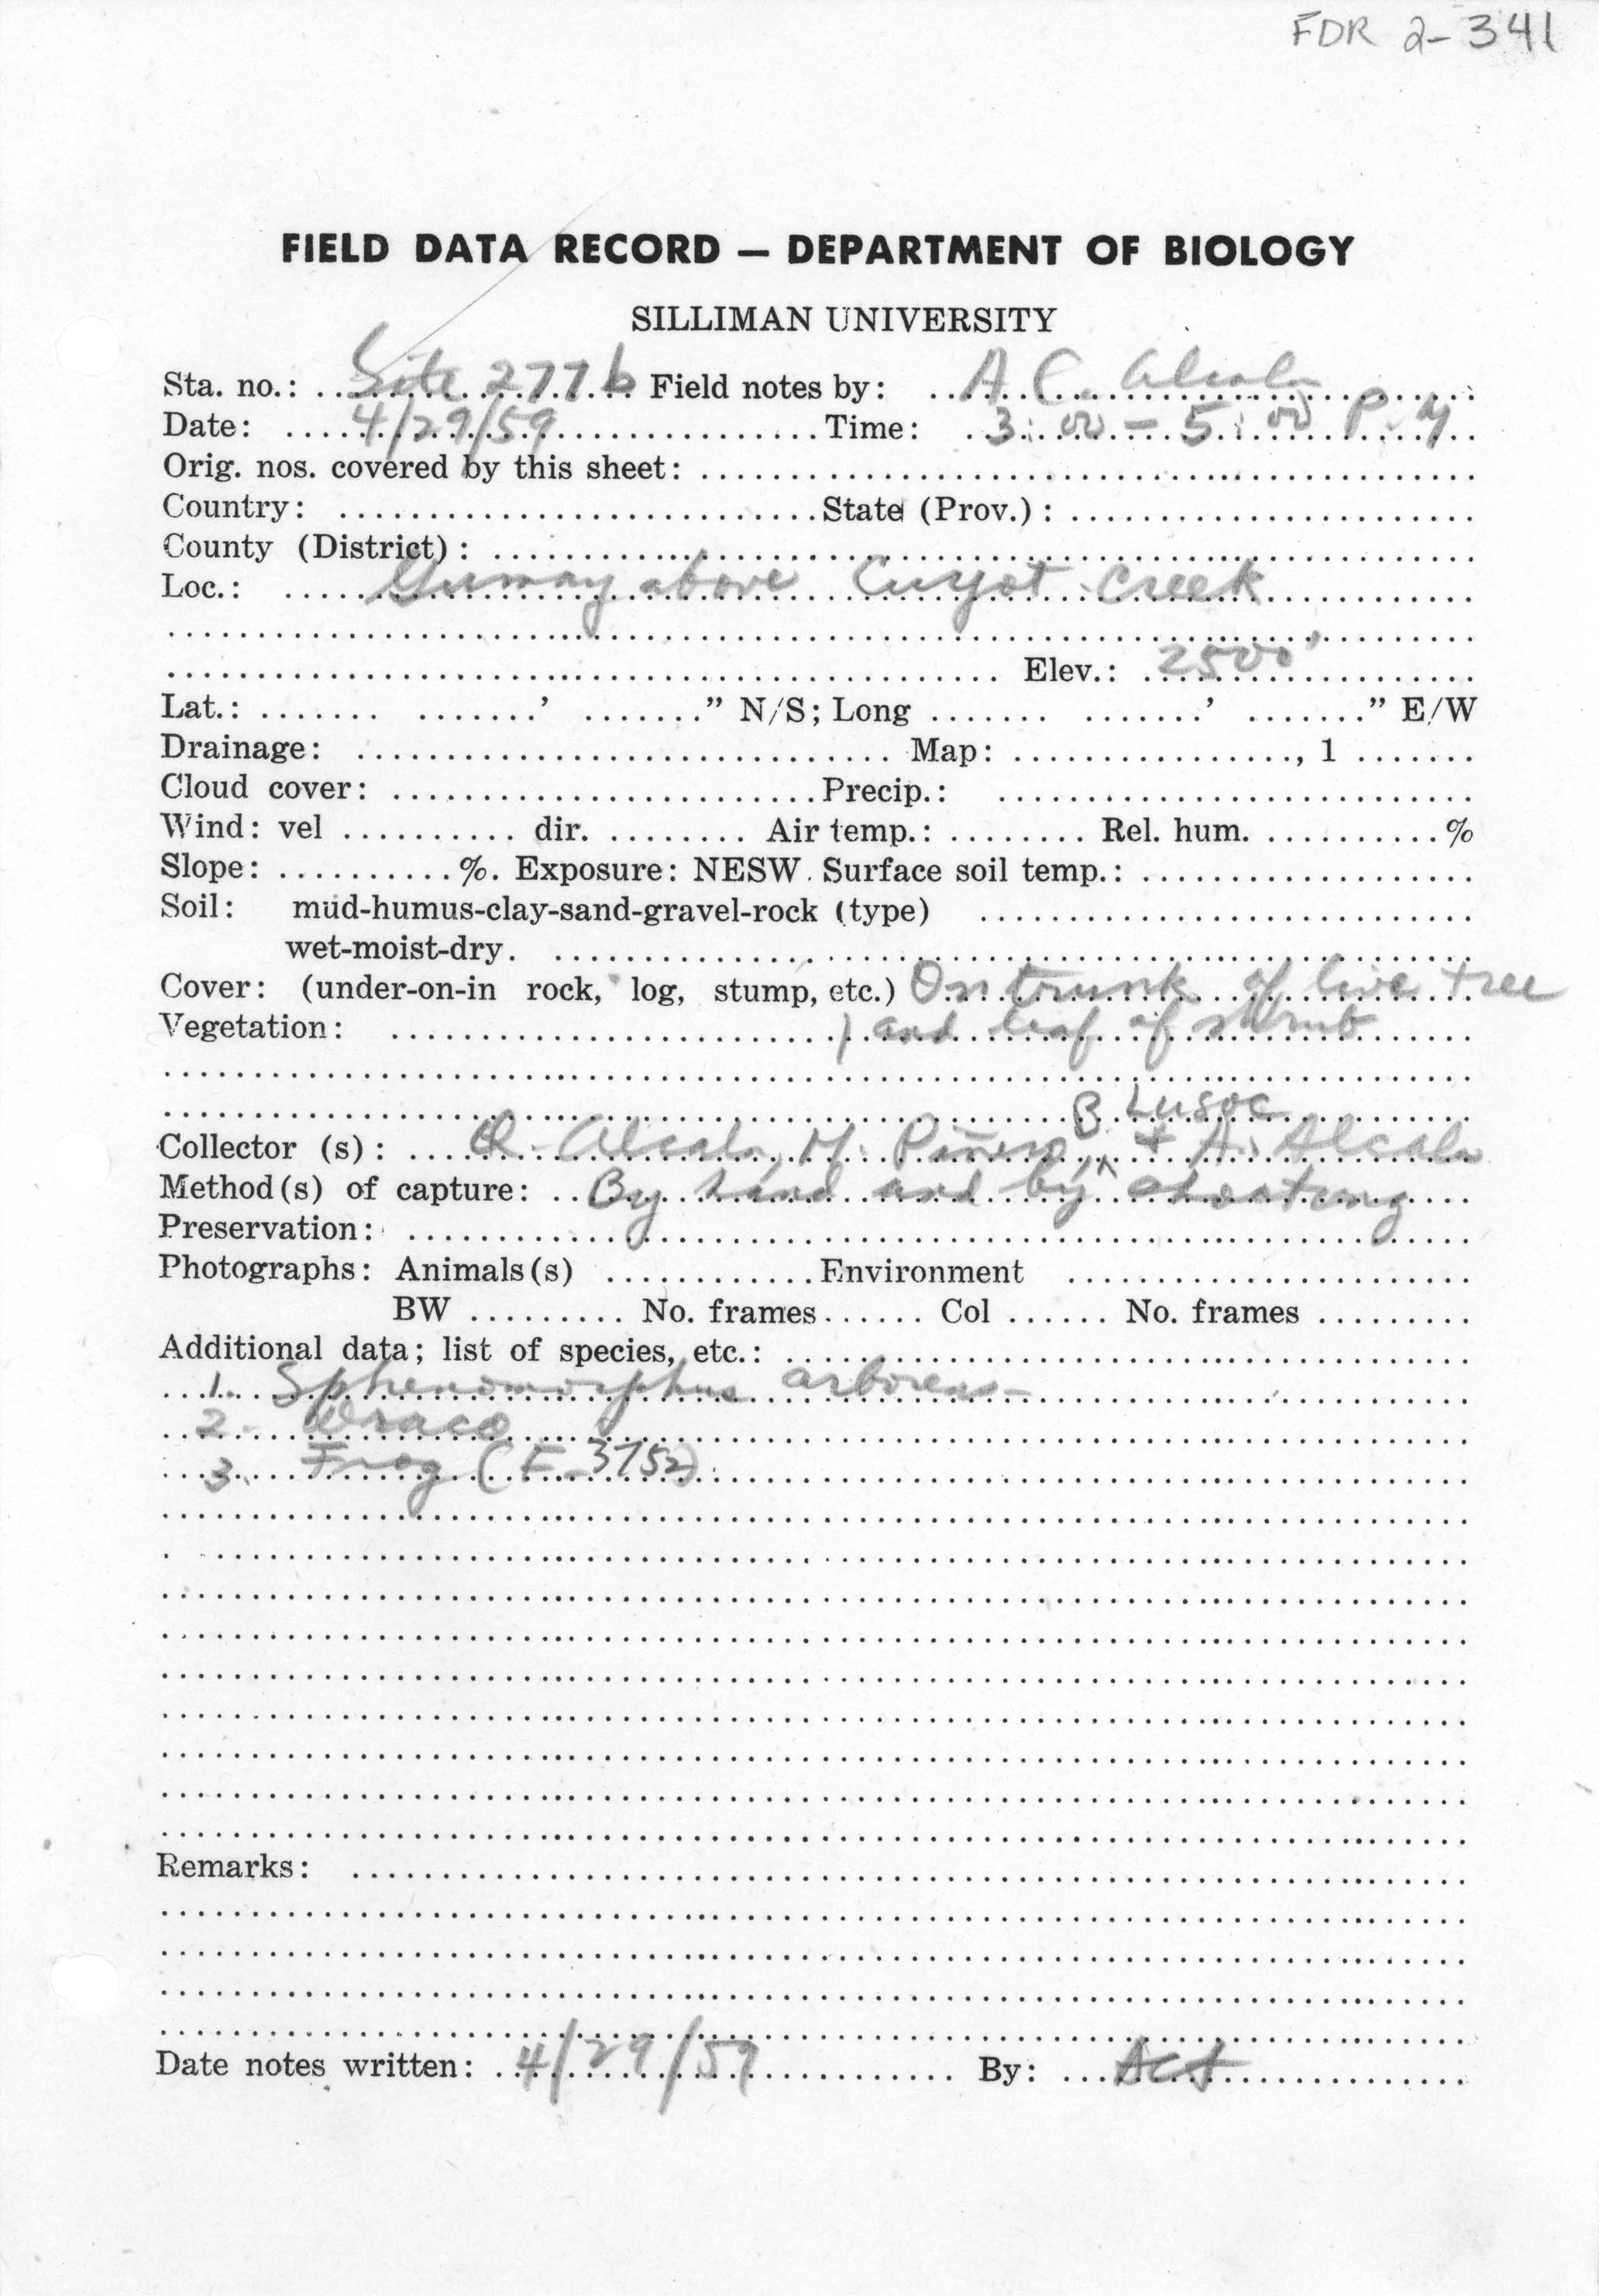 FDR 2-341
FIELD DATA RECORD — DEPARTMENT OF BIOLOGY
SILLIMAN UNIVERSITY
Sta. no.: Site 277b Field notes by: A C. Alcala
Date: 4/29/59 Time: 3:00 - 5:00 P.M
Orig. nos. covered by this sheet:
Country: State (Prov.):
County (District):
Loc.: above Cuyot Creek
Elev.: 2500'
Lat.: ' " N/S; Long ' " E/W
Drainage: Map: , 1
Cloud cover: Precip.:
Wind: vel dir. Air temp.: Rel. hum. %
Slope: %. Exposure: NESW. Surface soil temp.:
Soil: mud-humus-clay-sand-gravel-rock (type)
wet-moist-dry.
Cover: (under-on-in rock, log, stump, etc.) On trunk of live tree
Vegetation: ) and leaf of shrub
B. Lusoc
Collector (s): Q. Alcala, M. , ^ + A. Alcala
Method(s) of capture: By hand and by shooting
Preservation:
Photographs: Animals(s) Environment
BW No. frames Col No. frames
Additional data; list of species, etc.:
1. Sphenomorphus arborens-
2. Draco
3. Frog (F-3752)
Remarks:
Date notes written: 4/29/59 By: ACA